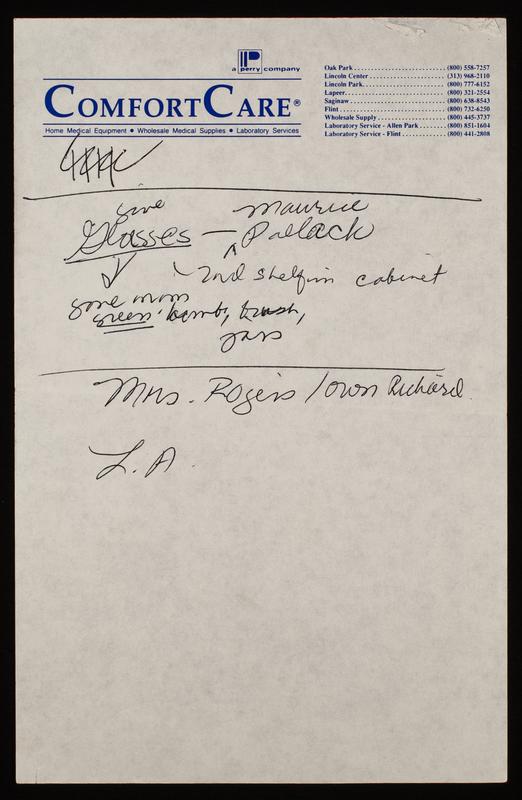 P
a perry company
COMFORTCARE®
Home Medical Equipment • Wholesale Medical Supplies • Laboratory Services
Oak Park (800) 558-7257
Lincoln Center (313) 968-2110
Lincoln Park (800) 777-6152
Lapeer (800) 321-2554
Saginaw (800) 638-8543
Flint (800) 732-6250
Wholesale Supply (800) 445-3737
Laboratory Service - Allen Park (800) 851-1604
Laboratory Service - Flint (800) 441-2808
give Maurice
Glasses —
2nd shelf in cabinet
green
Mrs. Rogers / own Richard
L.A.